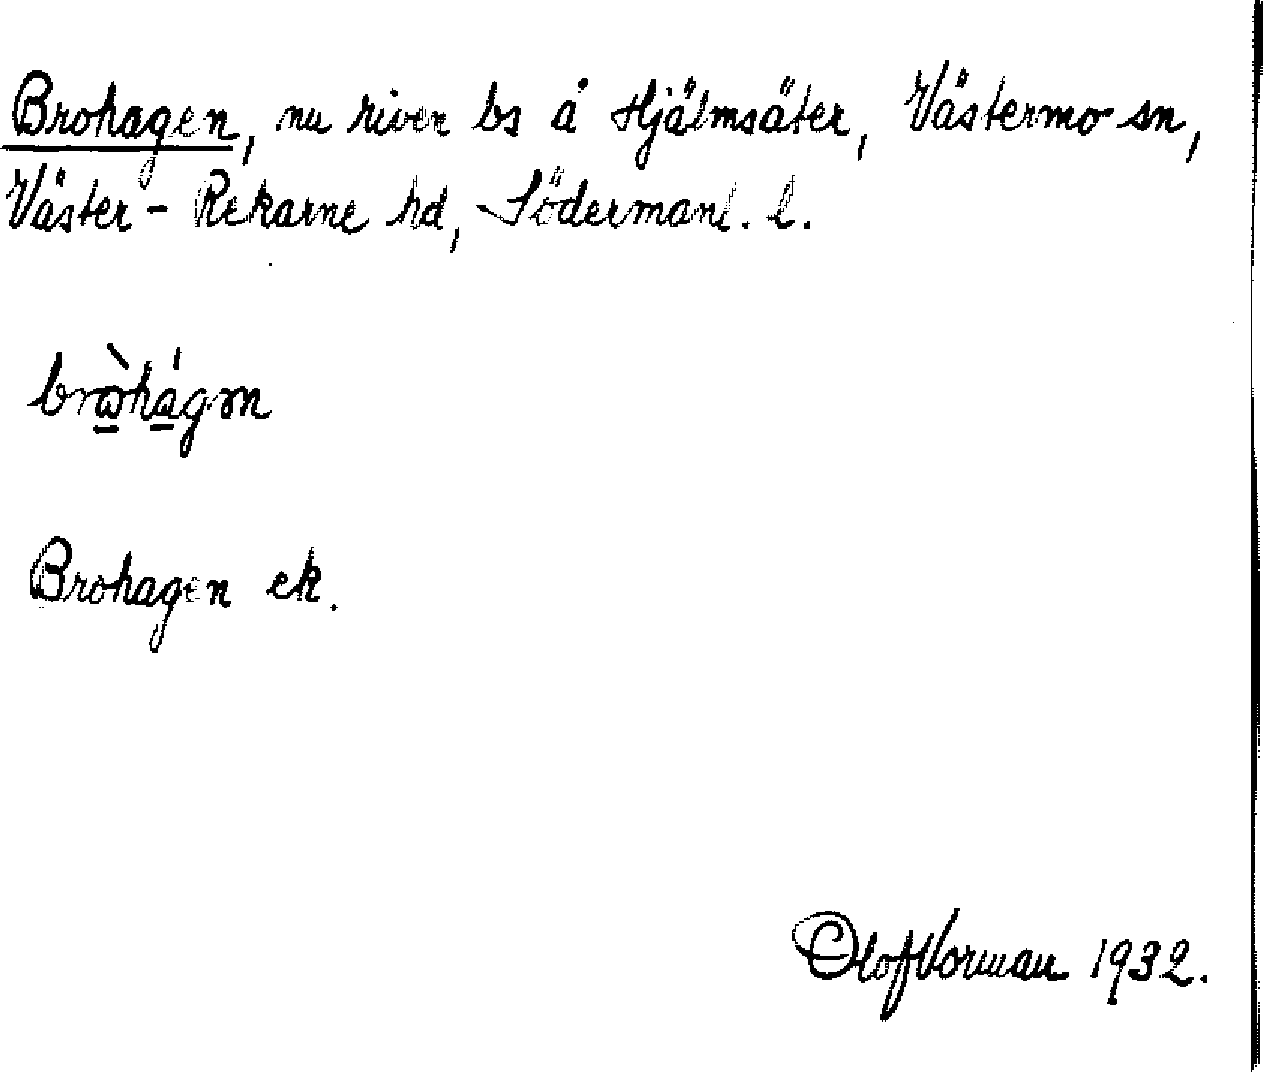 Brohagen, nu riven bs å Hjälmsäter, Västermo sn,
Väster-Rekarne hd, Södermanl. l.
brὼ̱há̱gən
Brohagen ek.
Olof Vorman 1932.